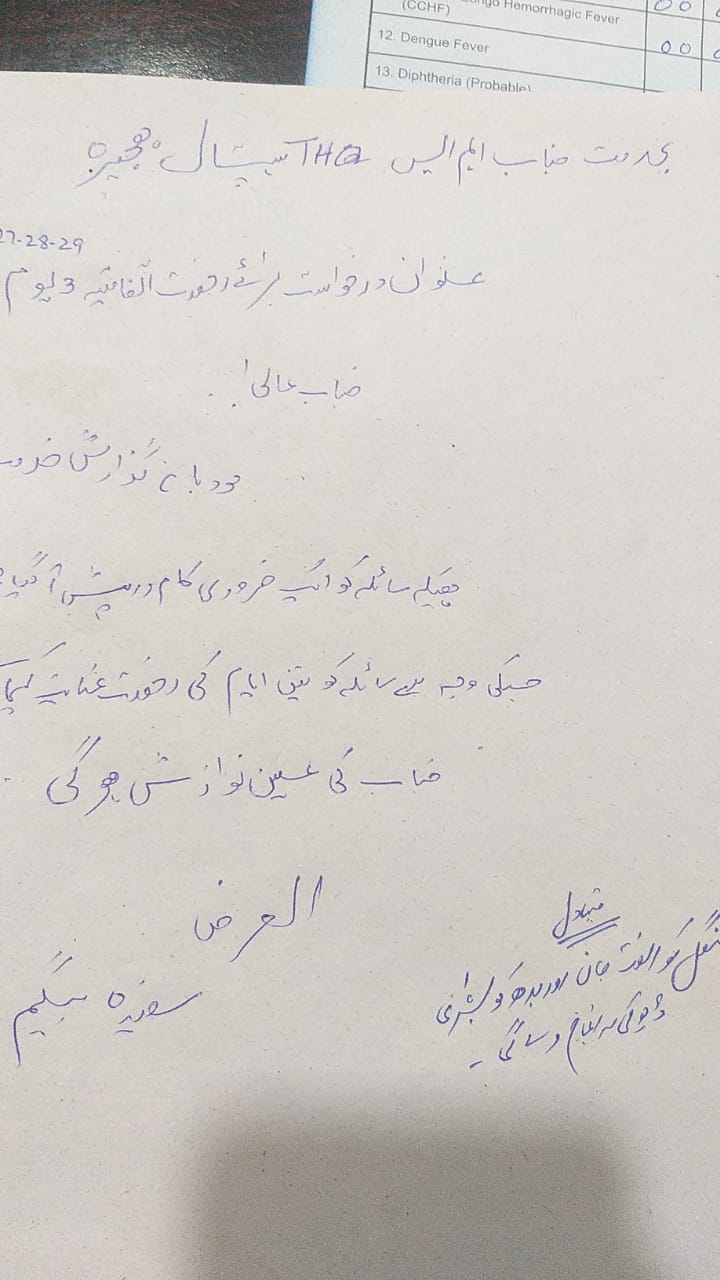 ongo Hemorrhagic Fever
(CCHF)
12. Dengue Fever
00
13. Diphtheria (Probable)
بخدمت جناب ایم ایس THQ ہسپتال ہجیرہ
27-28-29
عنوان درخواست برائے رخصت اتفاقیہ 3 یوم
جناب عالی!
مودبانہ گذارش خدمت
ہیکہ سائلہ کو ایک ضروری کام درپیش آ گیا
جسکی وجہ سے سائلہ کو تین ایام کی رخصت عنایت کیجا
جناب کی عین نوازش ہو گی
العرض
بیگم
متبادل
منگل کو الفت جان اور بدھ کو بشریٰ
ڈیوٹی سر انجام دے گی۔